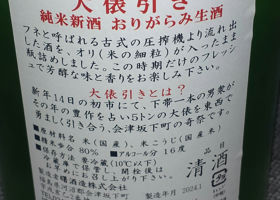 大俵引き
純米新酒 おりがらみ生酒
フネと呼ばれる古式の圧搾機より流れ出
した酒を、オリ(米の細粒)が入ったまま
瓶詰めしました。この時期だけのフレッシ
ュで芳醇な味と香りをお楽しみ下さい。
大俵引きとは?
新年14日の初市にて、下帯一本の男衆が
その年の豊作を占い5トンの大俵を東西で
勇ましく引き合う、会津坂下町の奇祭です。
●原材料 米(国産)、米こうじ(国産米)
●精米歩合 80% ●アルコール分 16度
●保存方法 要冷蔵(10℃以下)
にて保管し、開栓後は
お早めにお召し上がり下さい。
清酒
製造年月 2024.1
酒造株式会社
会津坂下町